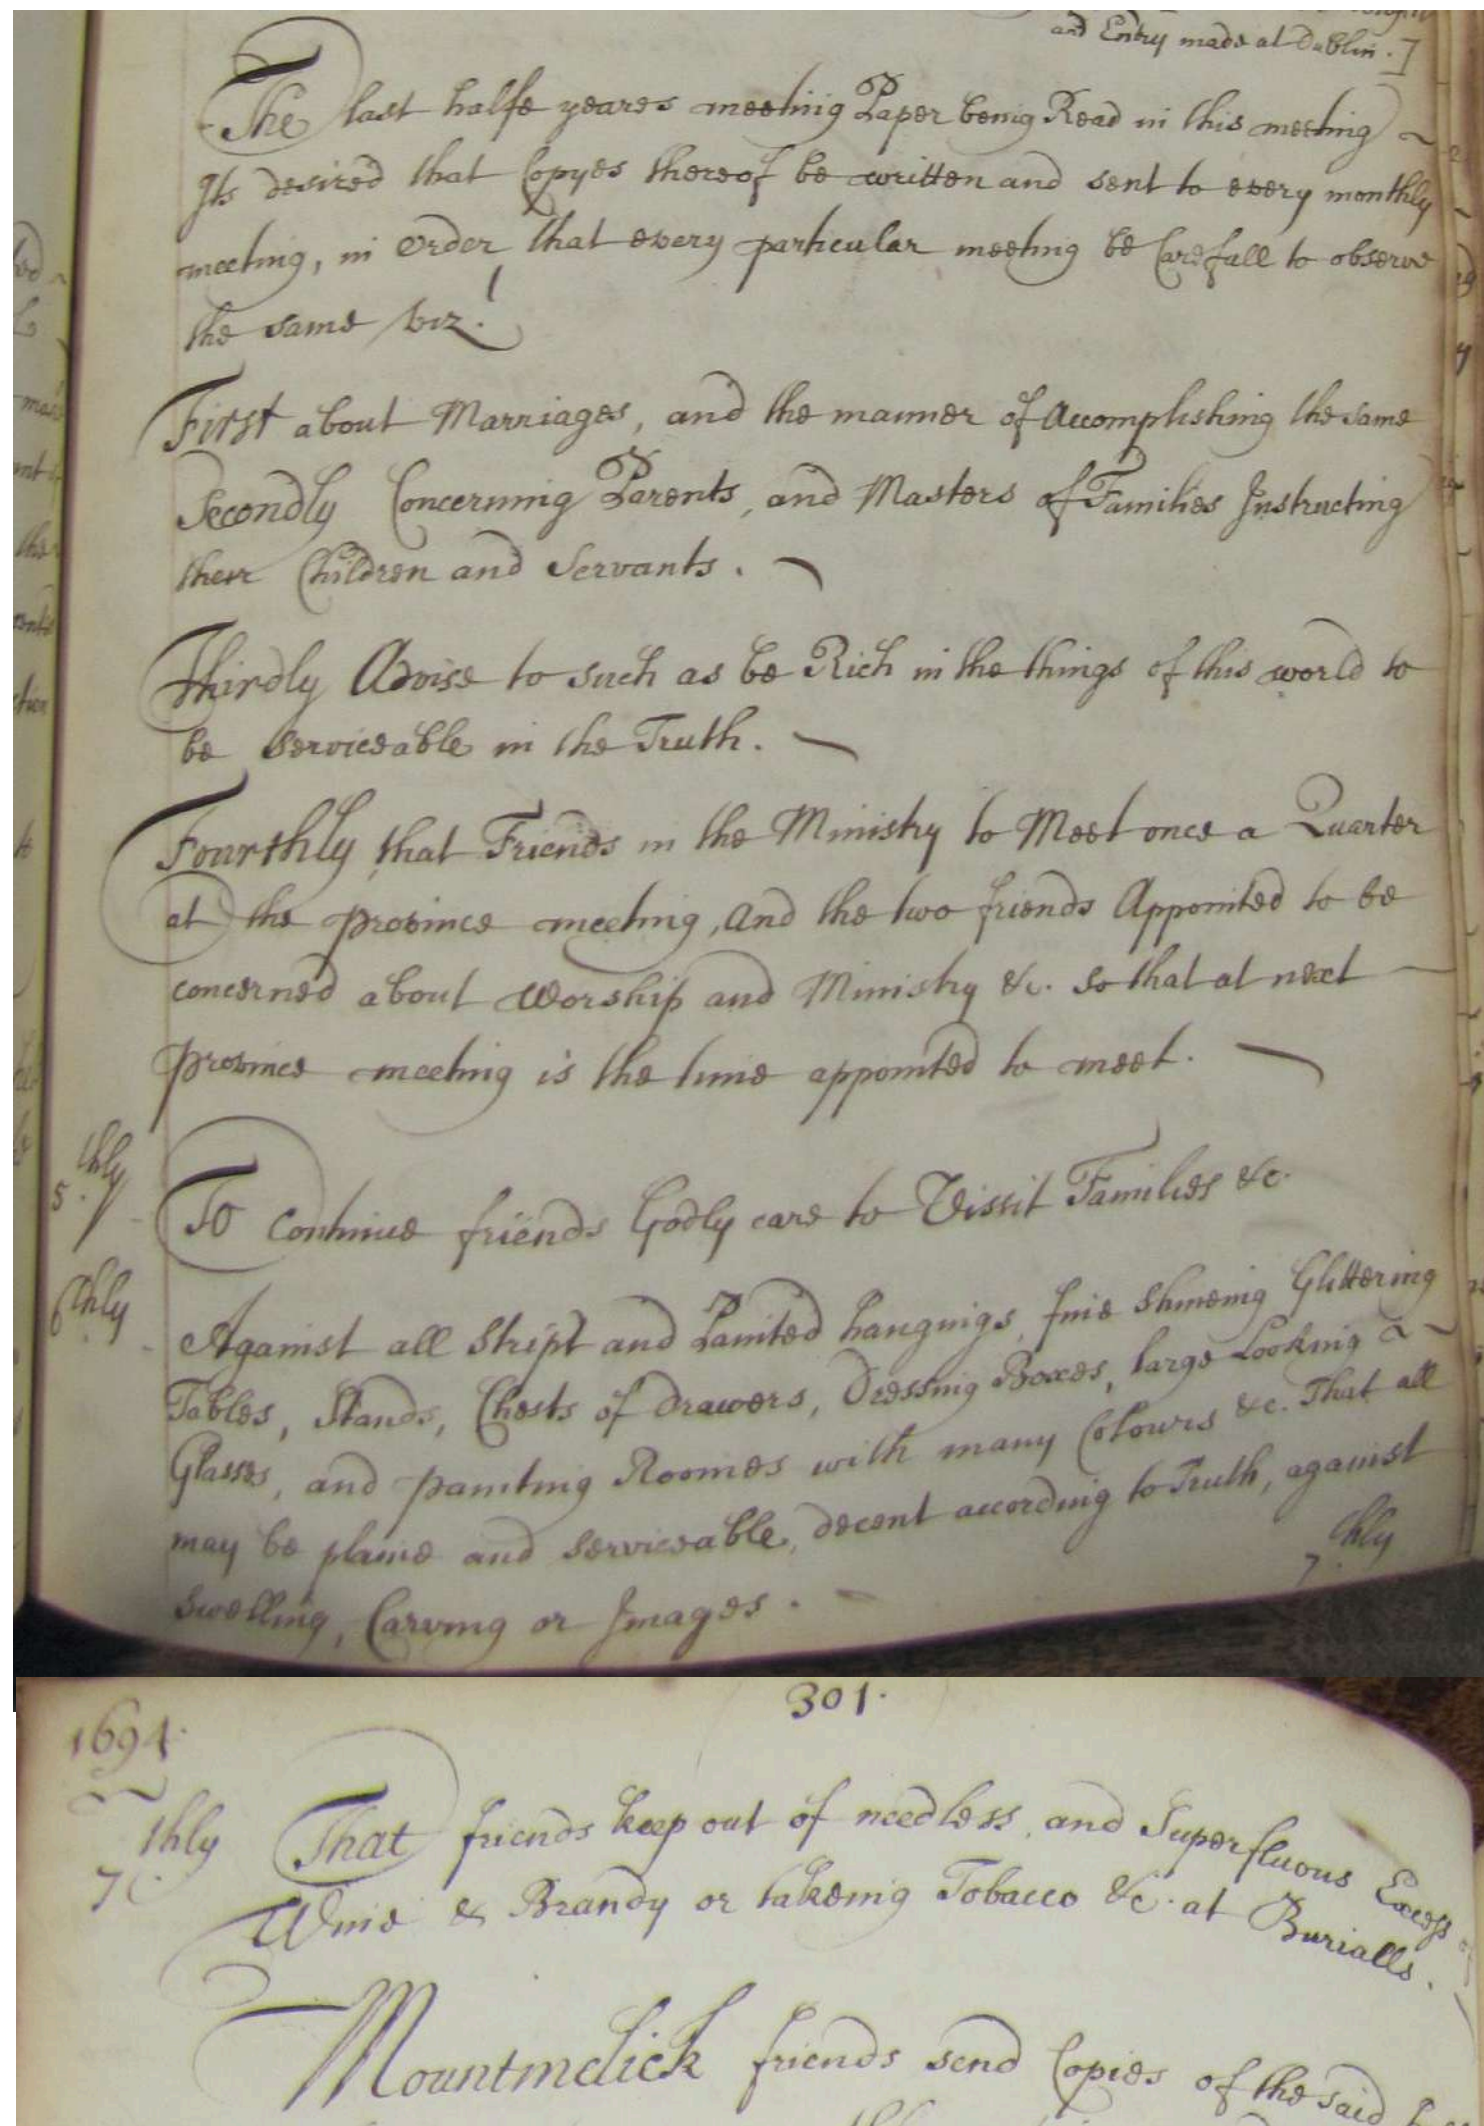 and Entry made at Dublin.]
The last halfe yeares meeting Paper being Read in this meeting
Its desired that Copyes thereof be written and sent to every monthly
meeting, in order that every particular meeting be Carefull to observe
the same viz.t
First about Marriages, and the manner of Accomplishing the same
Secondly Concerning Parents, and Masters of Families Instructing
their Children and Servants.
Thirdly Advise to such as be Rich in the things of this world to
be serviceable in the Truth.
Fourthly that Friends in the Ministry to Meet once a Quarter
at the province meeting, and the two friends Appointed to be
concerned about Worship and Ministry &c. so that at next
province meeting is the time appointed to meet.
5.thly To Continue friends Godly care to Vissit Families &c.
6thly Against all stript and Painted hangings, fine shineing Glittering
Tables, Stands, Chests of drawers, Dressing Boxes, large Looking
Glasses, and painting Roomes with many Colours &c. That all
may be plaine and serviceable, decent according to Truth, against
swelling, Carving or Images.
7.thly
301.
1694.
7.thly That friends keep out of needless, and Superfluous Excess of
Wine & Brandy or takeing Tobacco &c. at Burialls.
Mountmelick friends send Copies of the said